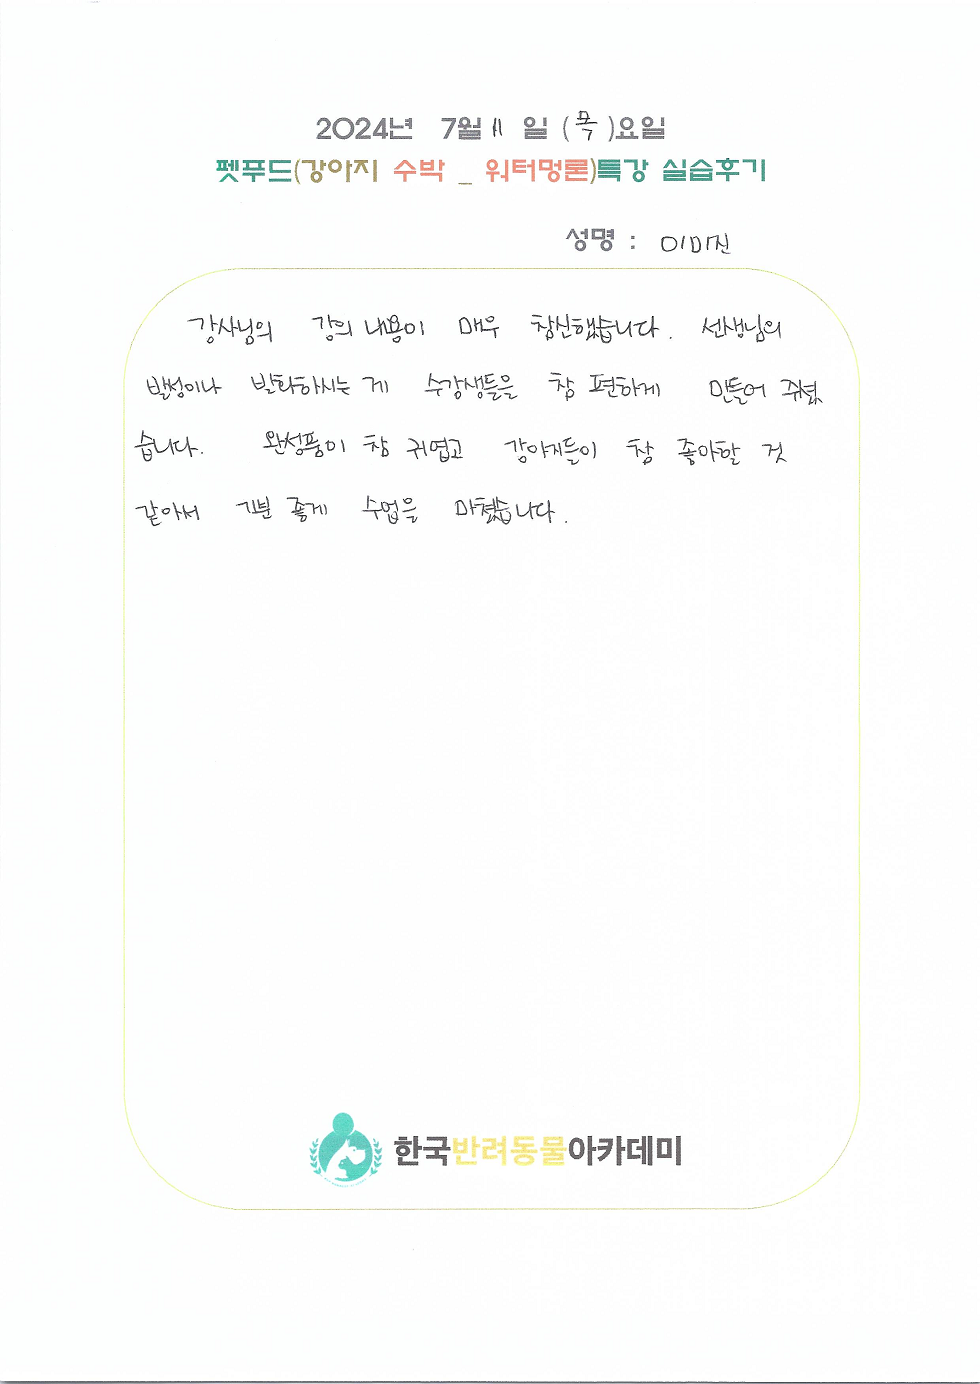 2024년 7월 11 일 (목)요일
펫푸드(강아지 수박 _ 워터멍론)특강 실습후기
성명 : 이미진
강사님의 강의 내용이 매우 참신했습니다. 선생님의
발성이나 발화하시는 게 수강생들을 참 편하게 만들어 주셨
습니다. 완성품이 참 귀엽고 강아지들이 참 좋아할 것
같아서 기분 좋게 수업을 마쳤습니다.
한국반려동물아카데미